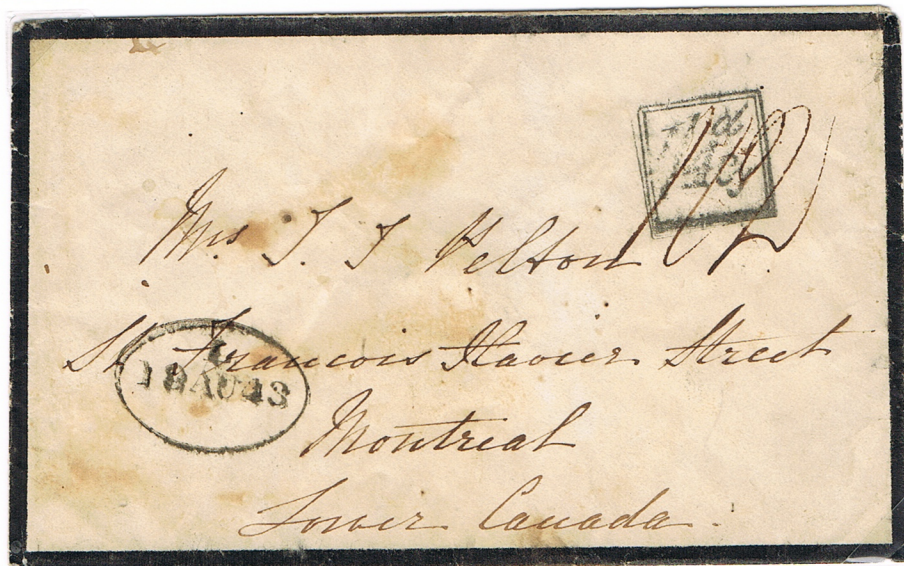 1/2
Mrs J. J. Pelton
St. Francois Xavier Street
L
18 AU 43
Montreal
Lower Canada.